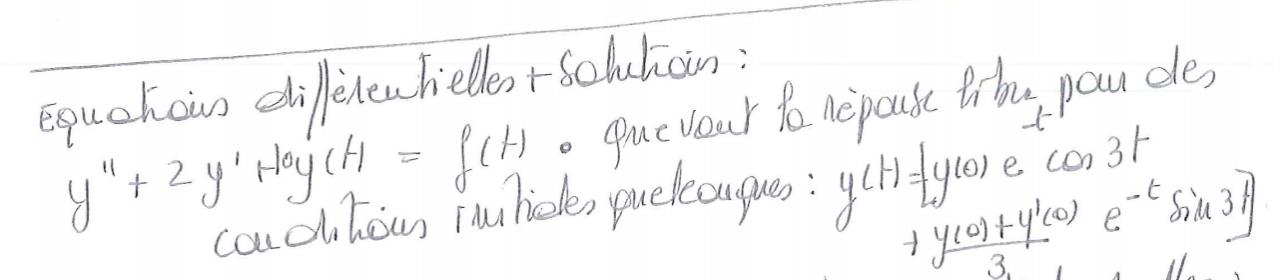 Equations différentielles + solutions :
y" + 2y' + 10y(t) = f(t) . Que vaut la réponse libre pour des
conditions initiales quelconques : y(t) = [y(0) e^-t cos 3t
+ (y(0)+y'(0))/3 e^-t sin 3t]